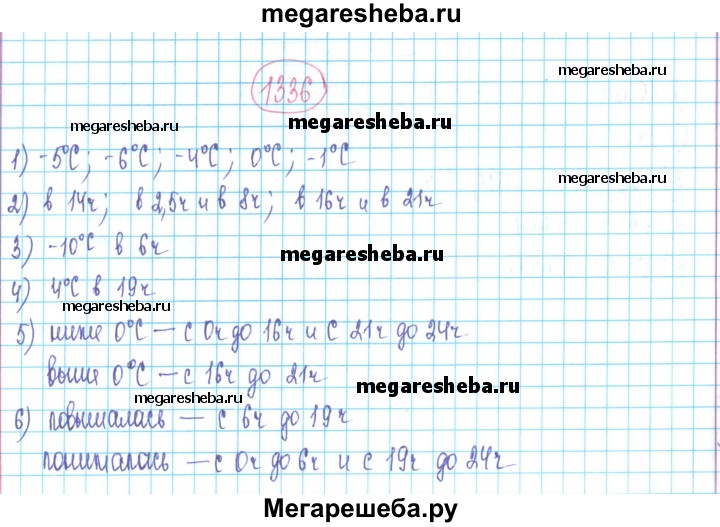 megaresheba.ru
megaresheba.ru
1336
megaresheba.ru
megaresheba.ru
1) -5°C; -6°C; -4°C; 0°C; -1°C
megaresheba.ru
2) в 14ч; в 2,5ч и в 8ч; в 16ч и в 21ч
3) -10°C в 6ч
megaresheba.ru
4) 4°C в 19ч
megaresheba.ru
5) ниже 0°C — с 0ч до 16ч и с 21ч до 24ч
выше 0°C — с 16ч до 21ч
megaresheba.ru
megaresheba.ru
6) повышалась — с 6ч до 19ч
понижалась — с 0ч до 6ч и с 19ч до 24ч
Мегарешеба.ру